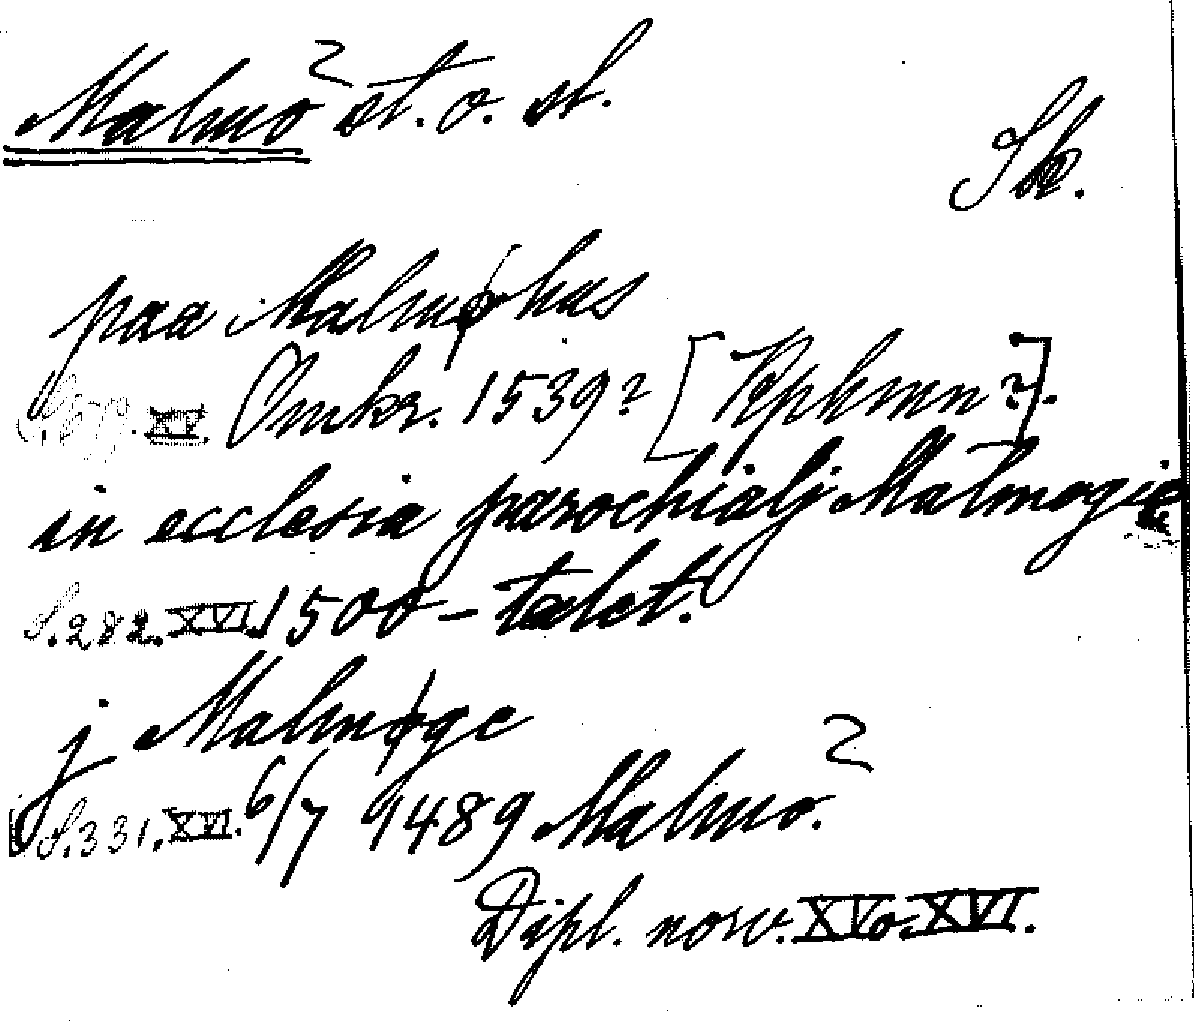 Malmö st. o. st.
Sk.
paa Malmøhus
XV. Omkr. 1539? [Kphmn?].
in ecclesia parochialj Malmogie
S. 282. XVI. 1500-talet.
j Malmøge
S. 331. XVI. 6/7 1489 Malmö.
Dipl. norv. XV o. XVI.